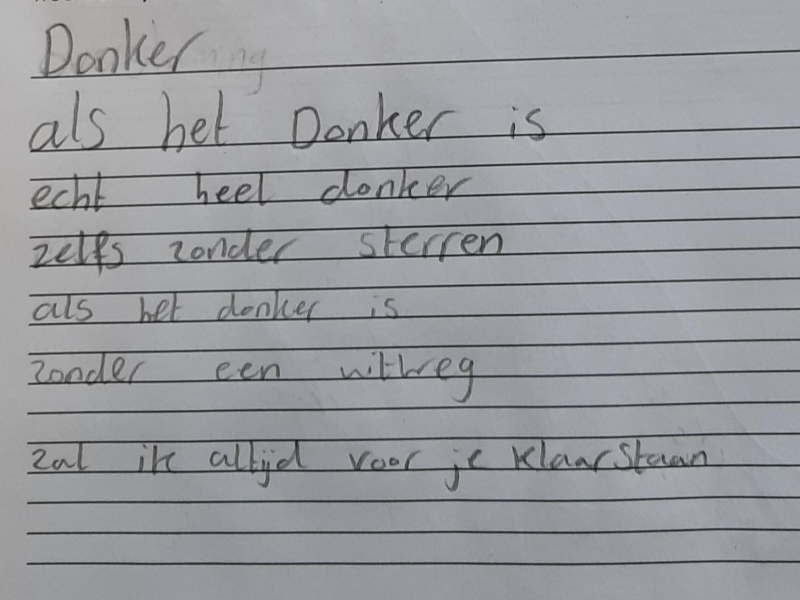 Donker
als het Donker is
echt heel donker
zelfs zonder sterren
als het donker is
zonder een uitweg
zal ik altijd voor je klaarstaan